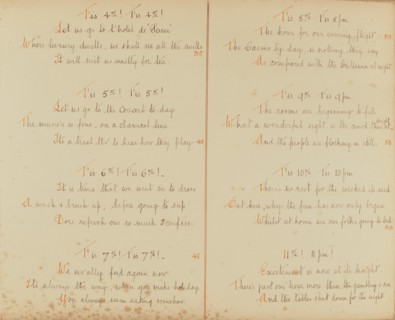 'Tis 4 ! 'Tis 4 !
Let us go to l'hôtel de Paris
Where luxury dwells, we shall see all the swells
It will suit us exactly for tea.
'Tis 5 ! 'Tis 5 !
Let us go to the Concert to day
The music's so fine, on a classical line
It's a treat to hear how they play
'Tis 6 ! 'Tis 6 !
It is time that we went in to dress
A wash & brush up, before going to sup
Does refresh one so much I confess.
'Tis 7 ! 'Tis 7 !
We are all food again now
It's always the way, when you make holiday
You always seem eating somehow
'Tis 8 'Tis 8 pm
The hour for our evening flight
The Casino by day, is nothing they say
As compared with the brilliance at night
'Tis 9 'Tis 9 pm
The rooms are beginning to fill
What a wonderful sight is the
And the people are flocking in still.
'Tis 10 'Tis 10 pm
There's no rest for the wicked it is said
But here, why the fun has now only begun
Whilst at home we folks going to bed
11 ! 11 pm !
Excitement is now at its height
There's just one hour more then the gambling is o'er
And the tables shut down for the night